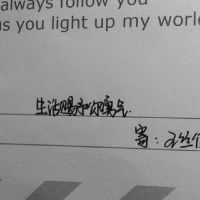 always follow you
as you light up my worl
生活赐予你勇气.
寄: